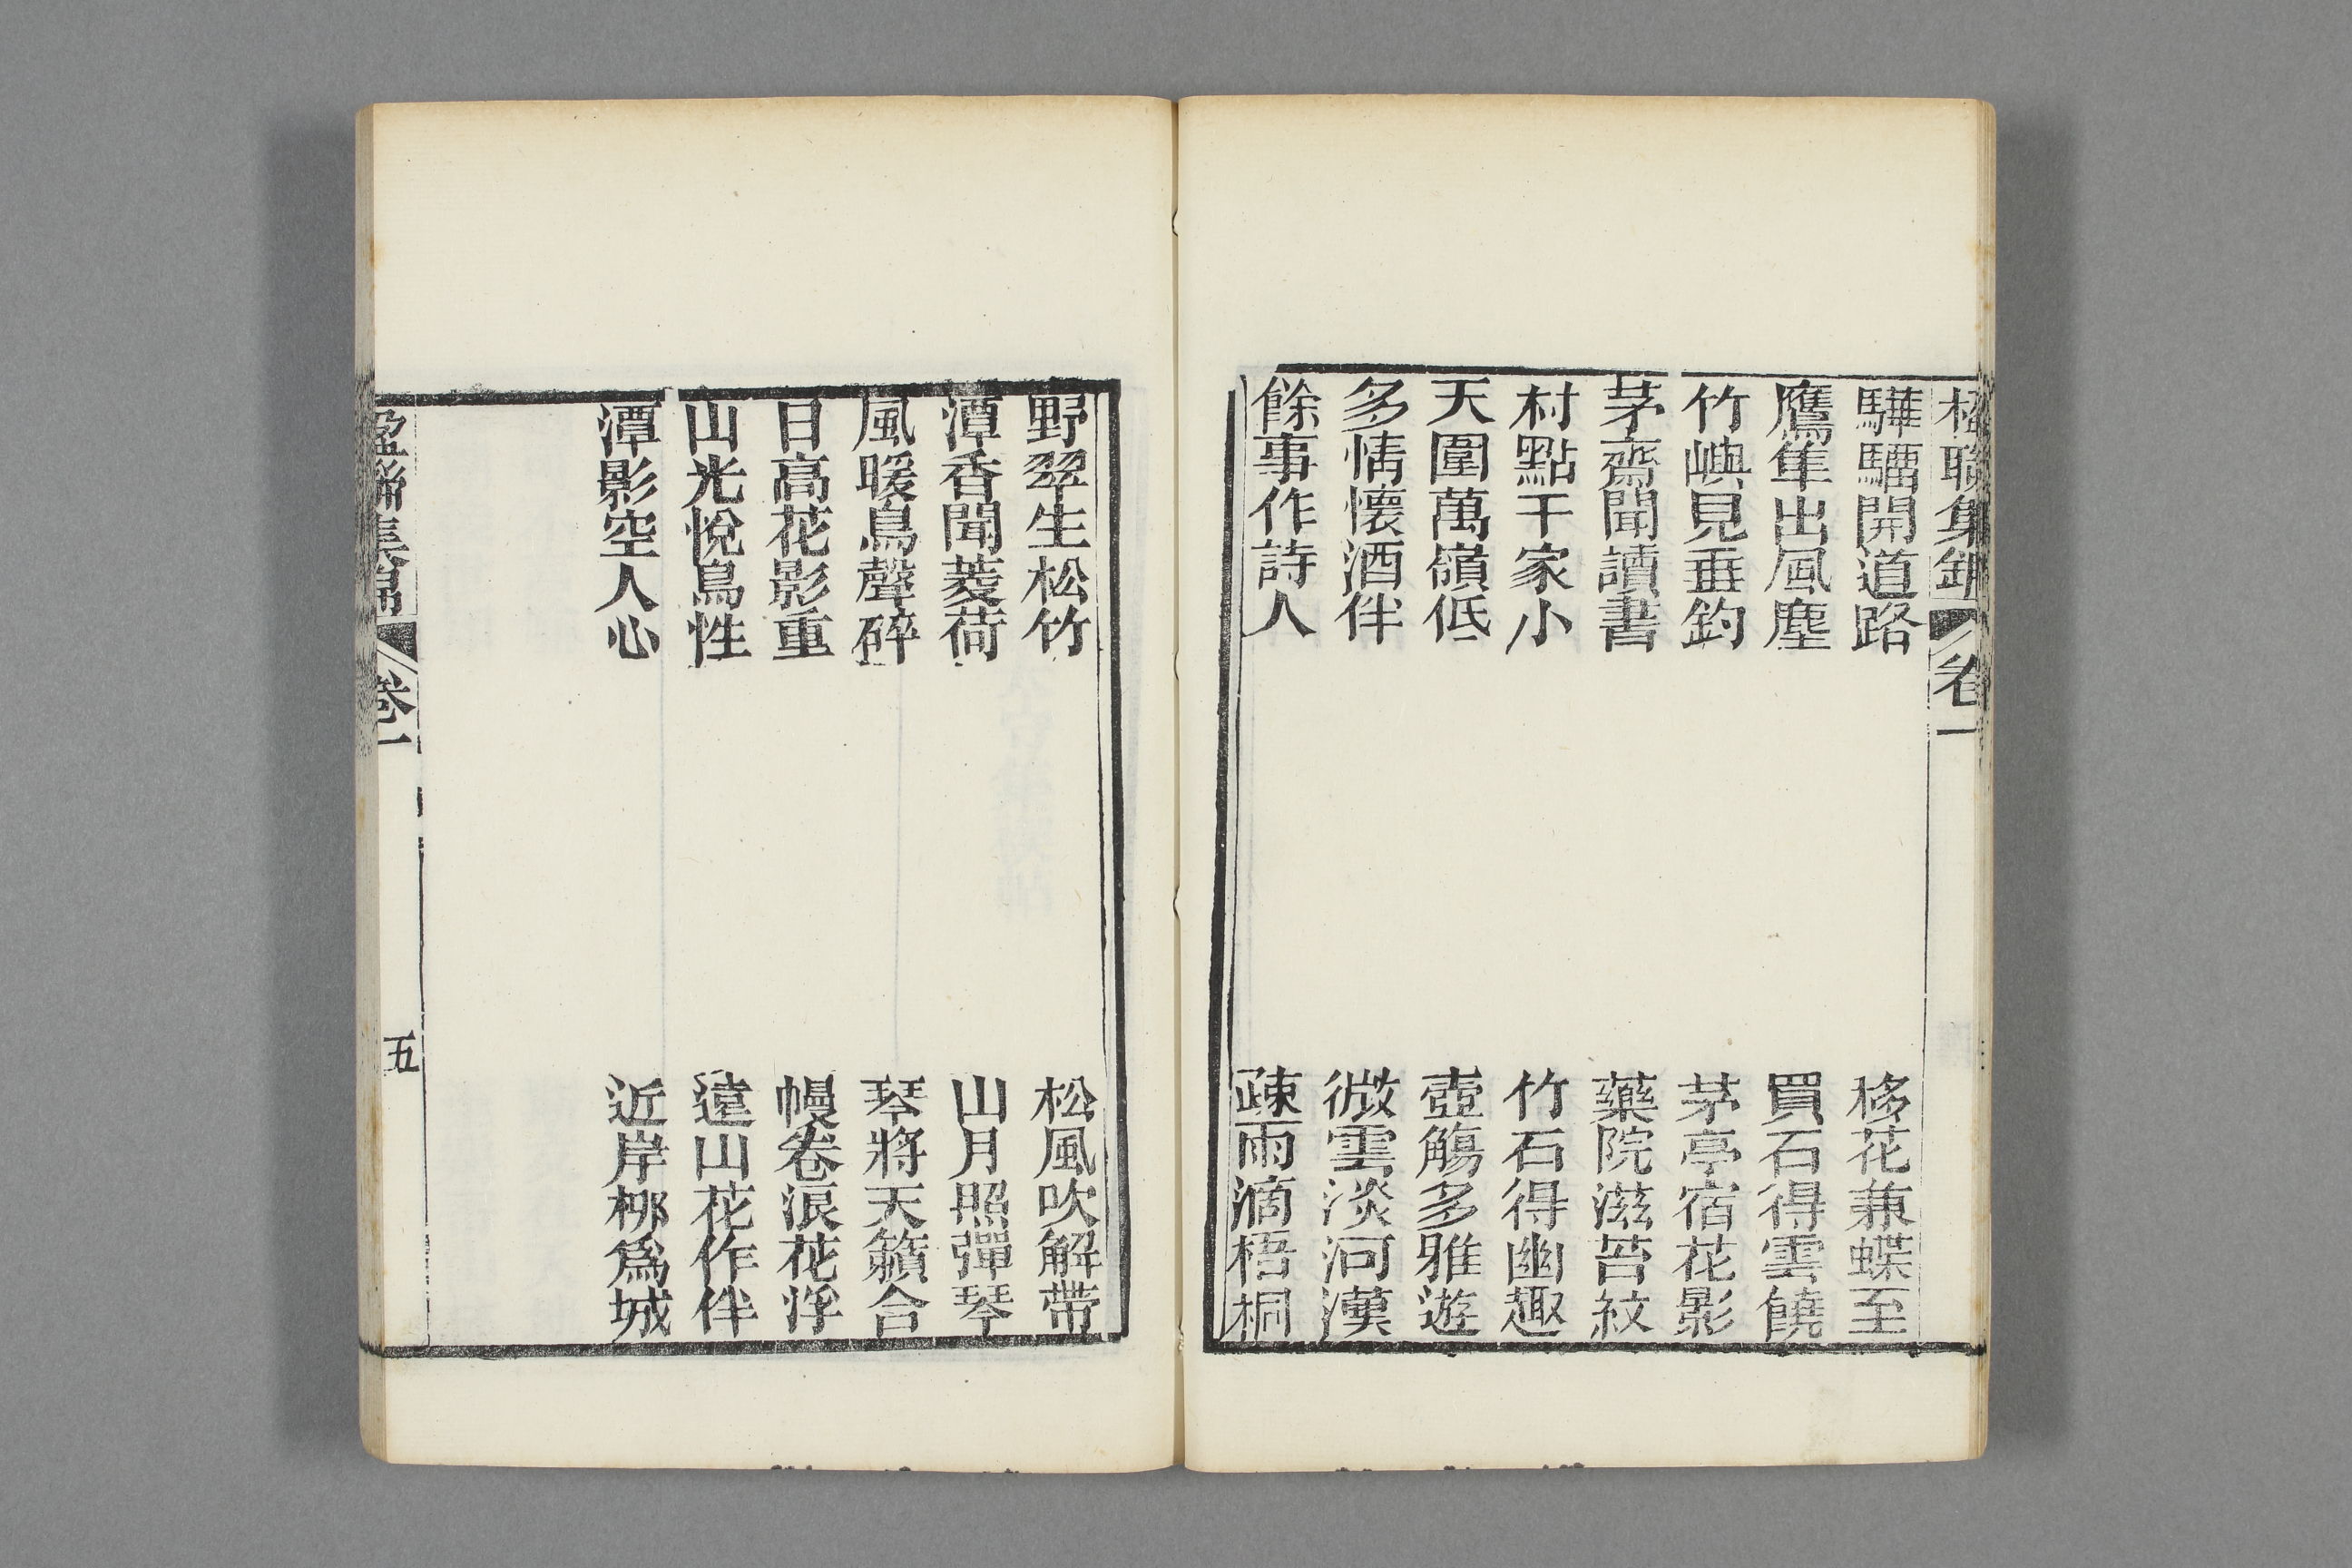 楹聯集錦 卷一
驊騮開道路 移花兼蝶至
鷹隼出風塵 買石得雲饒
竹嶼見垂釣 茅亭宿花影
茅齋聞讀書 藥院滋苔紋
村點千家小 竹石得幽趣
天圍萬嶺低 壺觴多雅遊
多情懷酒伴 微雲淡河漢
餘事作詩人 疎雨滴梧桐
野翠生松竹 松風吹解帶
潭香聞菱荷 山月照彈琴
風暖鳥聲碎 琴將天籟合
日高花影重 幔卷浪花浮
山光悅鳥性 遠山花作伴
潭影空人心 近岸柳爲城
楹聯集錦 卷一 五